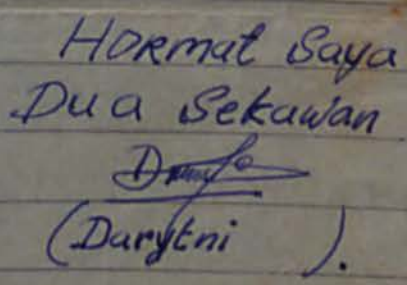 Hormat Saya
Dua Sekawan
(Darytni ).